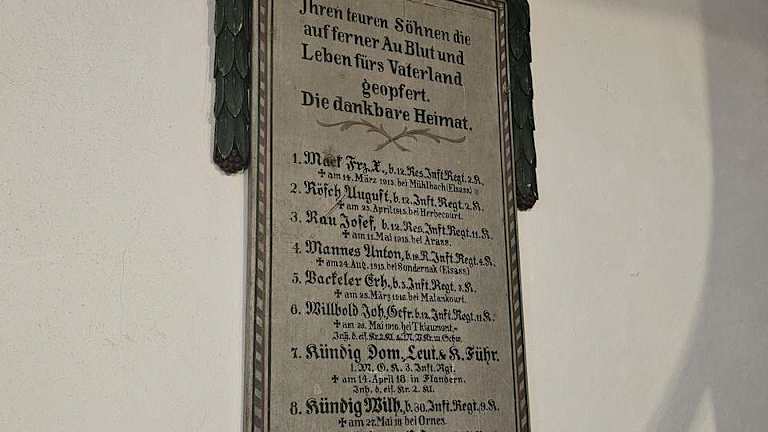 Ihren teuren Söhnen die
auf ferner Au Blut und
Leben fürs Vaterland
geopfert.
Die dankbare Heimat.
1. Maek Frz. X., b. 12. Res. Inft. Regt. 2. K.
✝ am 14. März 1915. bei Mühlbach (Elsass)
2. Rösch August, b. 12. Inft. Regt. 2. K.
✝ am 23. April 1915. bei Herbecourt.
3. Rau Josef, b. 12. Res. Inft. Regt. 11. K.
✝ am 11. Mai 1915. bei Arass.
4. Mannes Anton, b. 18. R. Inft. Regt. 4. K.
✝ am 24. Aug. 1915. bei Sondernak (Elsass)
5. Vackeler Erh., b. 3. Inft. Regt. 2. K.
✝ am 25. März 1916. bei Malankourt.
6. Willbold Joh., Gefr. b. 12. Inft. Regt. 11. K.
✝ am 26. Mai 1916. bei Thiaumont.
Inh. d. eis. Kr. 2. Kl. & M. V. Kr. m. Schw.
7. Kündig Dom., Leut. & K. Führ.
1. M. G. K. 3. Inft. Rgt.
✝ am 14. April 18 in Flandern.
Inh. d. eis. Kr. 2. Kl.
8. Kündig Wilh., b. 30. Inft. Regt. 9. K.
✝ am 27. Mai in bei Ornes.